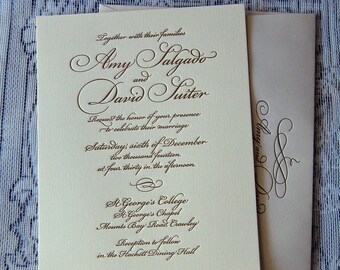 Together with their families
Amy Salgado
and
David Suiter
Request the honor of your presence
to celebrate their marriage
Saturday, sixth of December
two thousand fourteen
at four thirty in the afternoon
St George's College
St George's Chapel
Mounts Bay Road Crawley
Reception to follow
in the Hackett Dining Hall